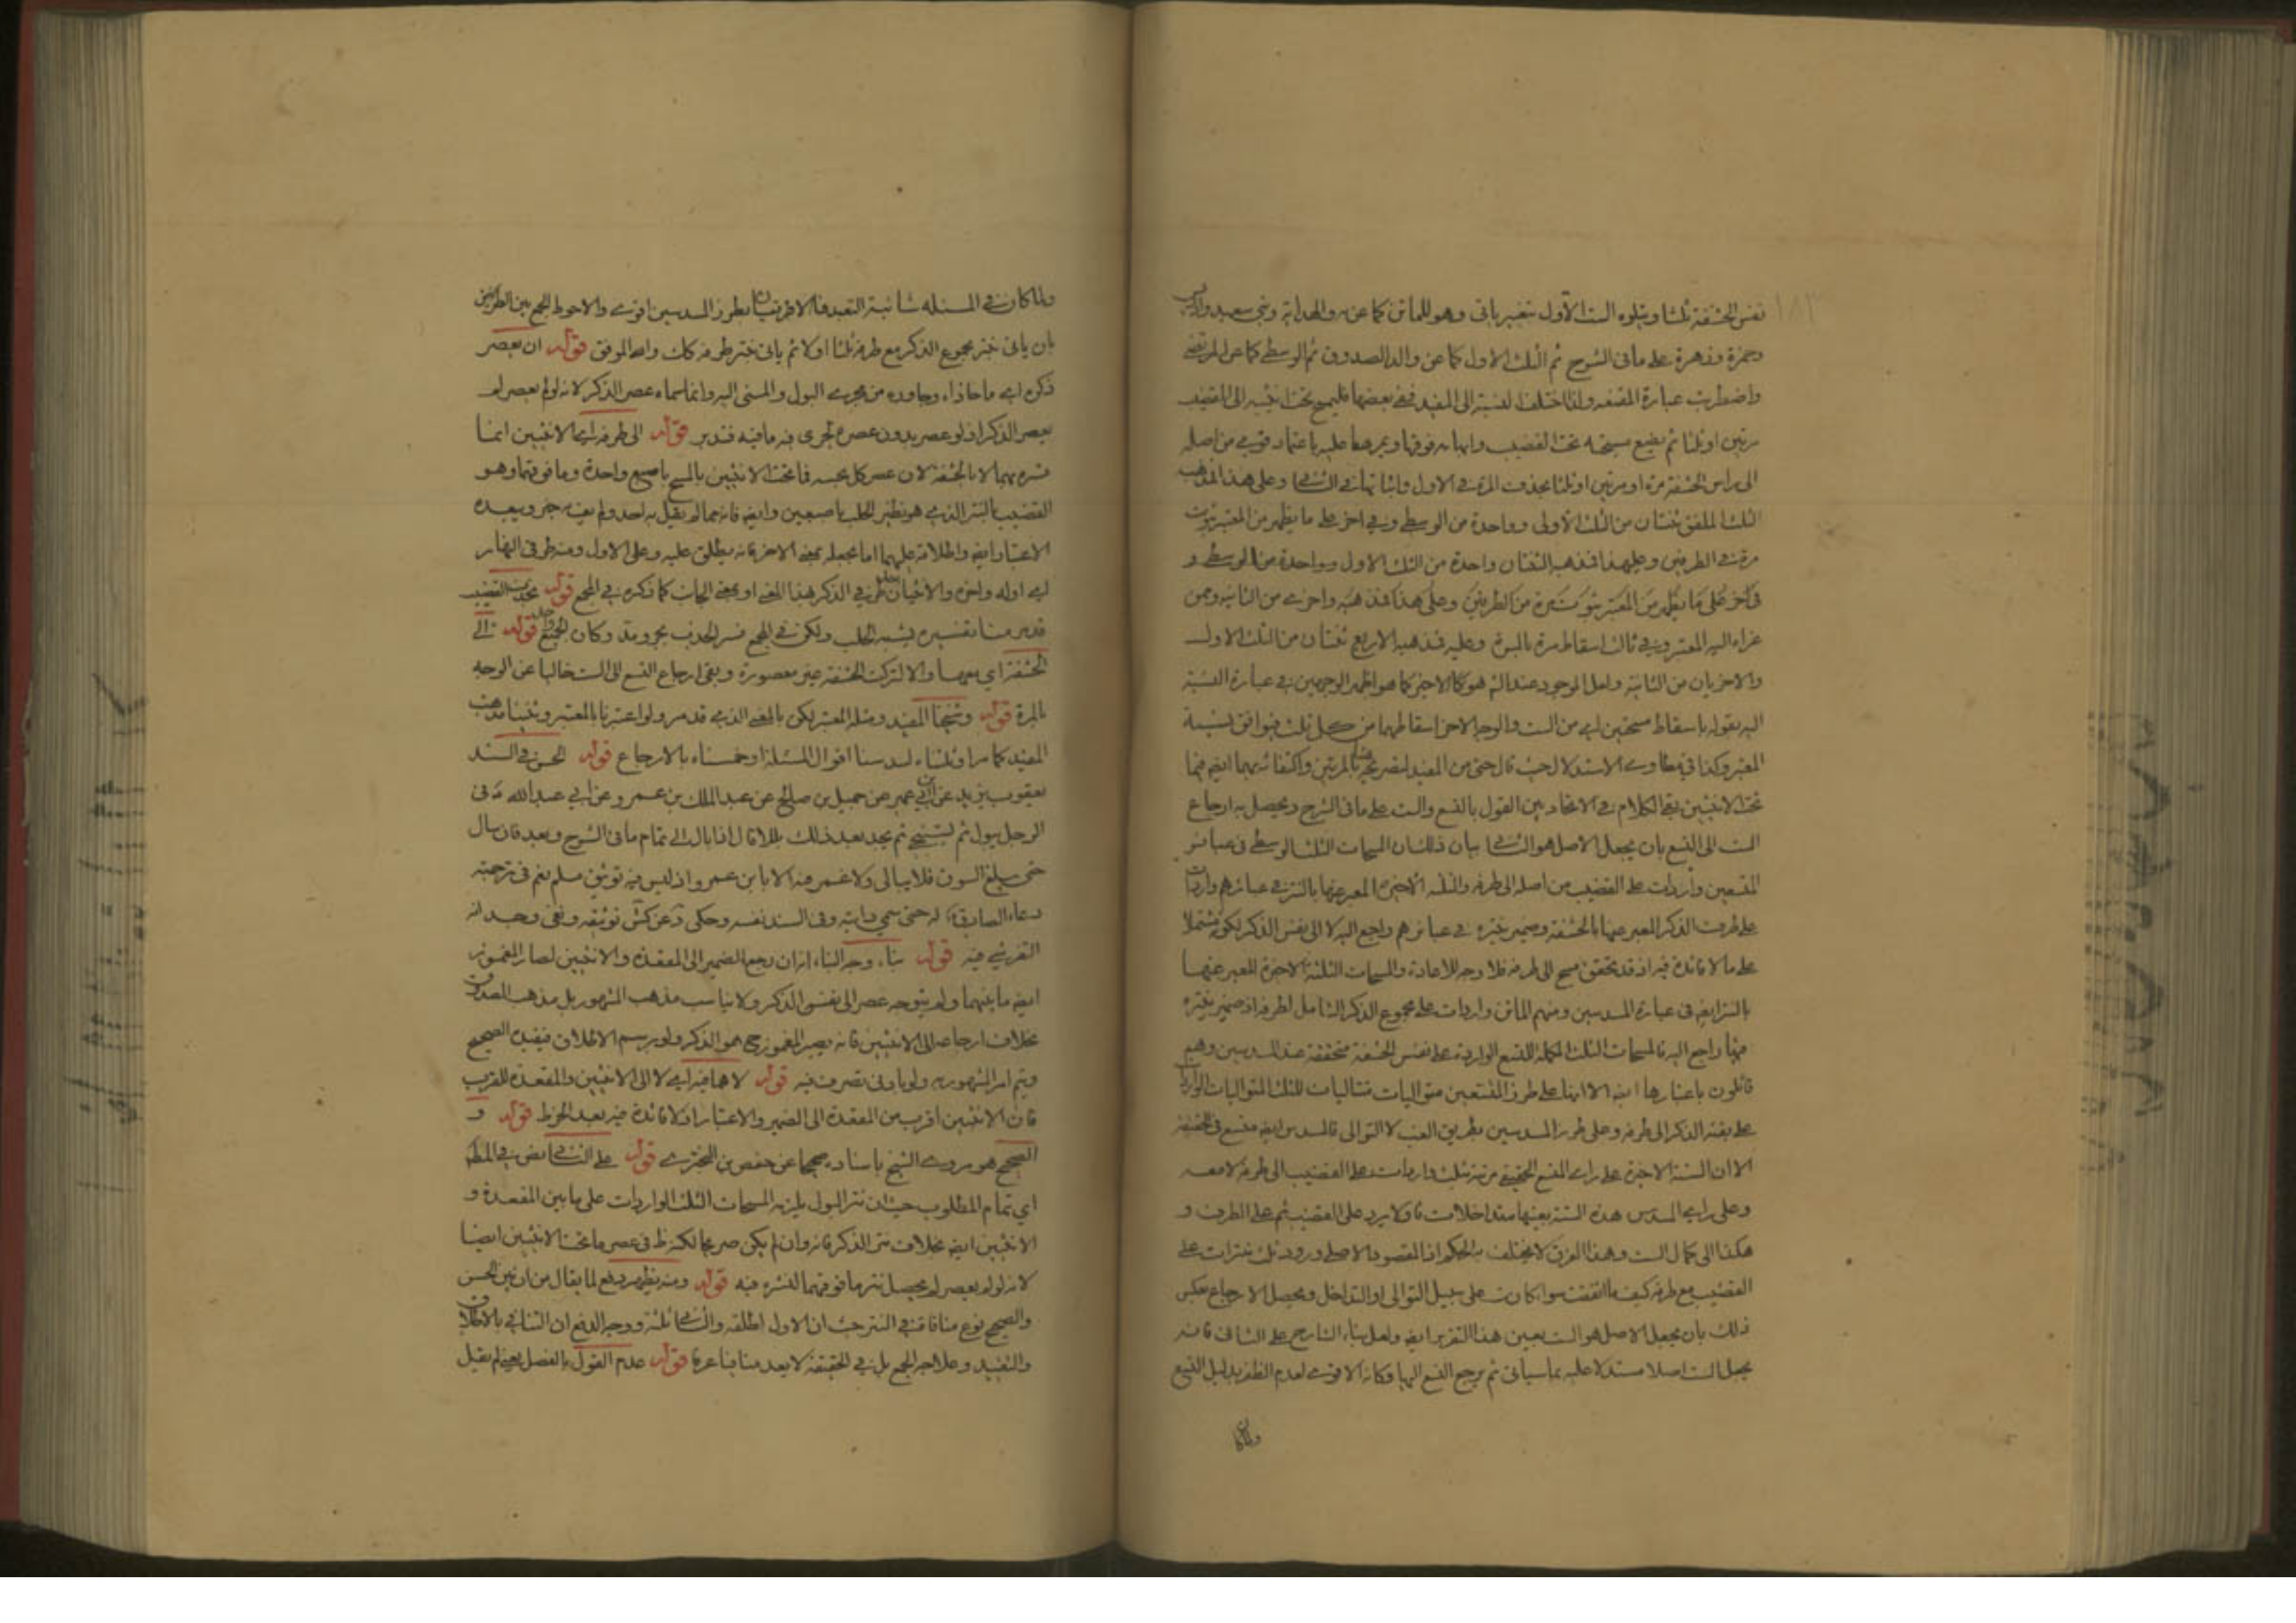 نفس الحشفة ثلثا ويتلوه الست الأول بتغيير ياتى وهو للماتن كما عن يه والهداية وبني سعيد وادريس
وحمزة وزهرة على ما فى الشرح ثم الثلث الاول كما عن والد الصدوق ثم الوسطى كما عن المرتضى
واضطربت عبارة المقنعه ولذا اختلف النسبة الى المفيد ففى بعضها فليمسح تحت انثييه الى القضيب
مرتين او ثلثا ثم يضع مسبحته تحت القضيب وابهامه فوقها ويمرهما عليه باعتماد قوى من اصله
الى راس الحشفة مرة او مرتين او ثلثا بحذف المرة فى الاول واثباتها فى الثانى وعلى هذا المذهب
الثلث الملفق ثنتان من الثلث الاولى وواحدة من الوسطى وفى اخر على ما يظهر من المعتبر ثبوت
مرة فى الطرفين وعليهذا فمذهبه الثنتان واحدة من الثلث الاول وواحدة من الوسطى و
فى آخر على ما يظهر من المعتبر ثبوت مرة من الطرفين وعلى هذا فمذهبه واخرى من الثانية وممن
عزاه اليه المعتبر وفى ثالث اسقاط مرة بالمرة وعليه فمذهبه الاربع ثنتان من الثلث الاول
والاخريان من الثانية ولعل الموجود عند الش هو كالاخير كما هو اظهر الوجهين فى عبارة النسبة
اليه بقوله باسقاط مسحتين اى من الست والوجه الاخر اسقاطهما من كل ثلث فيوافق نسبة
المعتبر وكذا فى مطاوى الاستدلال حيث قال حتى من المفيد لتصريحه بالمرتين واكتفائه بهما ايضا فيما
تحت الانثيين بقى الكلام فى الاتحاد بين القول بالتسع والست على ما فى الشرح ويحصل به ارجاع
الست الى التسع بان يجعل الاصل هو الثانى بيان ذلك ان المسحات الثلث الوسطى فى عبائر
المتسعين واردات على القضيب من اصله الى طرفه والثلثه الاخيرة المعبر عنها بالنتر فى عبائرهم واردات
على طرف الذكر المعبر عنها بالحشفة وضمير ينتره فى عبائرهم راجع اليه لا الى نفس الذكر ليكون مشتملا
على ما لا فائدة فيه اذ قد تحقق مسح الى طرفه فلا وجه للاعادة والمسحات الثلثة الاخيرة المعبر عنها
بالنتر ايضا فى عبارة المسدسين ومنهم الماتن واردات على مجموع الذكر الشامل لطرفه اذ ضمير ينتره
فيها راجع اليه فالمسحات الثلث المكملة للتسع الواردة على نفس الحشفة متحققة عند المسدسين وهم
قائلون باعتبارها ايضا الا انها على طرز المتسعين متواليات متتاليات للثلث المتواليات الواردات
على بقية الذكر الى طرفه وعلى طرز المسدسين بطريق الغب لا التوالى فالمسدس ايضا متسع فى الحقيقة
الا ان الستة الاخيرة على راى المتسع الحقيقى مرتبة ثلث واردات على القضيب الى طرفه لا معه
وعلى راى المسدس هذه الستة بعينها متداخلات فاولا يرد على القضيب ثم على الطرف و
هكذا الى كمال الست وهذا الفرق لا يختلف به الحكم اذ المقصود الاصلى ورود ثلث نترات على
القضيب مع طرفه كيف ما اتفقت سواء كان على سبيل التوالى او التداخل ويحصل الارجاع بعكس
ذلك بان يجعل الاصل هو الست بعين هذا التقرير ايضا ولعل بناء الشارح على الثانى فانه
يجعل الست اصلا مستدلا عليه بما سياتى ثم يرجع التسع اليها وكانه الاقوى لعدم الظفر بدليل التسع
ولما كان
ولما كان فى المسئله شائبة التعبد فالاقرب ان طرز المسدسين اقوى والاحوط الجمع بين الطرفين
بان ياتى بنتر مجموع الذكر مع طرفه ثلثا اولا ثم ياتى بنتر طرفه كك والله الموفق قوله ان يعصر
ذكره اى ما حاذاه وجاوره من مجرى البول والمنى اليه وانما سماه عصر الذكر لانه لو لم يعصر لم
يعصر الذكر اذ لو عصر بدون عصره لجرى فيه ما فيه فتدبر قوله الى طرفه اى الانثيين انما
فسره بهما لا بالحشفة لان عصر كل بحسبه فما تحت الانثيين بالمسح باصبع واحدة وما فوقهما وهو
القضيب بالنتر الذى هو نظير الحلب باصبعين وايضا فانه مما لم يقل به احد ولم يعينه خبر ويبعده
الاعتبار ايضا واطلاقه عليهما اما بجعله بمعنى الاخر فانه يطلق عليه وعلى الاول ومنه طرفى النهار
اى اوله واخره والانثيان طرفى الذكر بهذا المعنى او بمعنى الجانب كما ذكره فى المجمع قوله يجذب القضيب
قد مر منا تفسيره بشبه الحلب ولكن فى المجمع فسر الجذب بجر ومد وكان الجميع واحد قوله الى
الحشفة اى معها والا لتركت الحشفة غير معصورة وبقى ارجاع التسع الى الست خاليا عن الوجه
بالمرة قوله وشيخنا المفيد ومثله المعتبر لكن بالمعنى الذى قد مر ولو اعتبرنا بالمعتبر وثنينا مذهب
المفيد كما مر او ثلثناه لسدسنا اقوال المسئلة او خمسناه بالارجاع قوله الحسن فى السند
يعقوب بن يزيد عن ابن ابى عمير عن جميل بن صالح عن عبد الملك بن عمرو عن ابى عبد الله ع فى
الرجل يبول ثم يستنجى ثم يجد بعد ذلك بللا قال اذا بال الى تمام ما فى الشرح وبعده فان سال
حتى يبلغ السوق فلا يبالى ولا غمز فيه الا بابن عمرو اذ ليس فيه توثيق مسلم نعم فى ترجمته
دعاء الصادق ع له حتى سمى دابته وفى السند نفسه وحكى د عن كش توثيقه ونفى وجدانه
التفرشى فيه قوله بناء وجه البناء انه ان رجع الضمير الى المقعدة والانثيين لصار المغموز
ايضا ما بينهما ولم يتوجه عصر الى نفس الذكر ولا يناسب مذهب المشهور بل مذهب الصدوق
بخلاف ارجاعه الى الانثيين فانه يصير المغموز ح هو الذكر ولو برسم الاطلاق فيقيده الصحيح
ويتم امر المشهور به ولو بادنى تصرف فيه قوله لاهما فيه اى لا الى الانثيين والمقعدة للقرب
فان الانثيين اقرب من المقعدة الى الضمير والاعتبار اذ لا فائدة فيه بعد الخرط قوله و
الصحيح هو مروى الشيخ باسناد صحيح عن حفص بن البخترى قوله على الثانى نص فى المط
اى تمام المطلوب حيث ان نتر البول يلزمه المسحات الثلث الواردات على ما بين المقعدة و
الانثيين ايضا بخلاف نتر الذكر فانه وان لم يكن صريحا لكنه ظ فى عصر ما تحت الانثيين ايضا
لانه لو لم يعصر لم يحصل نتر ما فوقهما لنتره فيه قوله ومنه يظهر دفع لما يقال من ان بين الحسن
والصحيح نوع منافاة فى النتر حيث ان الاول اطلقه والثانى ثلثه ووجه الدفع ان التنافى بالاطلاق
والتقييد وعلاجه الجمع بل فى الحقيقة لا يعد منافيا عرفا قوله عدم القول بالفصل يعنى لم يقل